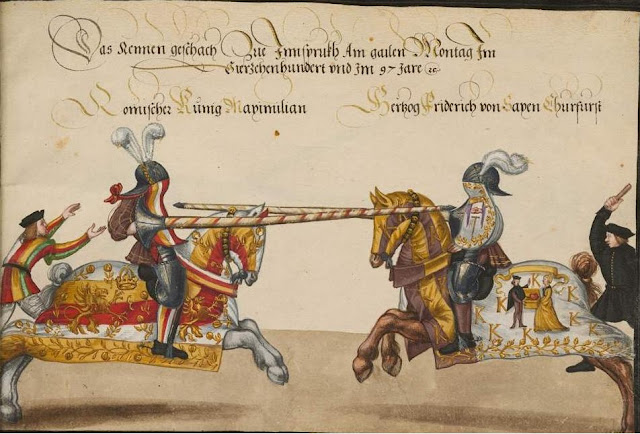 Das Rennen geschach Zue Innsprukh Am gailen Montag Im
Vierzehenhundert vnd Im 97 Jare ꝛc
Romischer Künig Maximilian
Hertzog Friderich von Saxen Churfürst
K K K K K K K